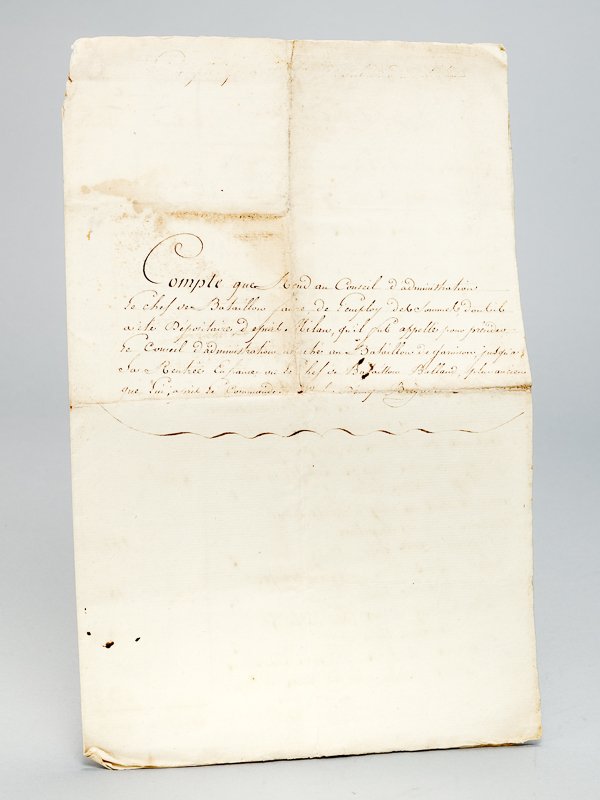 Compte que Rend au Conseil d'administration
Le chef de Bataillon faure de l'employ des Sommes dont il
a été Depositaire, depuis Milan, qu'il fut appellé pour présider
Le Conseil d'administration attaché au Bataillon de garnison jusqu'à
Sa Rentrée En france ou le Chef de Bataillon Billard plus ancien
que lui, a pris le Commandement